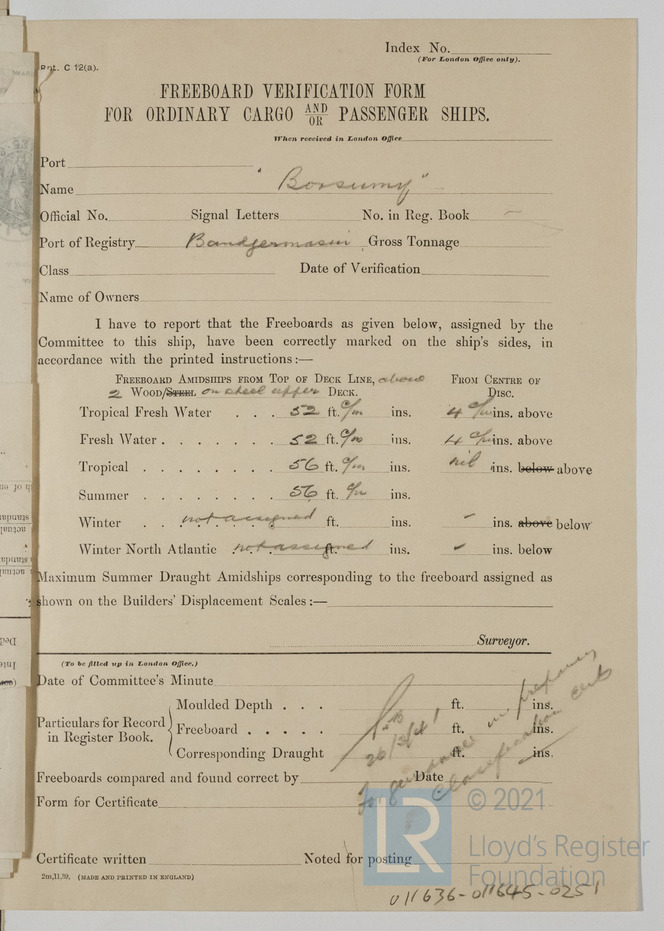 Index No.
(For London Office only).
Rpt. C 12(a).
FREEBOARD VERIFICATION FORM
FOR ORDINARY CARGO AND/OR PASSENGER SHIPS.
When received in London Office
Port
Name "Borsumy"
Official No. Signal Letters No. in Reg. Book
Port of Registry Bandjermasin Gross Tonnage
Class Date of Verification
Name of Owners
I have to report that the Freeboards as given below, assigned by the
Committee to this ship, have been correctly marked on the ship's sides, in
accordance with the printed instructions:—
FREEBOARD AMIDSHIPS FROM TOP OF DECK LINE, above FROM CENTRE OF
2 WOOD/STEEL on steel upper DECK. DISC.
Tropical Fresh Water . . . 52 ft. c/m ins. 4 c/m ins. above
Fresh Water . . . . . . . 52 ft. c/m ins. 4 c/m ins. above
Tropical . . . . . . . . 56 ft. c/m ins. nil ins. below above
Summer . . . . . . . . 56 ft. c/m ins.
Winter . . not assigned ft. ins. - ins. above below
Winter North Atlantic . not assigned ft. ins. - ins. below
Maximum Summer Draught Amidships corresponding to the freeboard assigned as
shown on the Builders' Displacement Scales:—
Surveyor.
(To be filled up in London Office.)
Date of Committee's Minute
Moulded Depth . . . ft. ins.
Particulars for Record in Register Book.
Freeboard . . . . . ft. ins.
Corresponding Draught ft. ins.
26/3/41
For guidance in preparing
Classification Cert
Freeboards compared and found correct by Date
Form for Certificate
Certificate written Noted for posting
2m,11,39. (MADE AND PRINTED IN ENGLAND)
LR
© 2021
Lloyd's Register
Foundation
011636-011645-0251